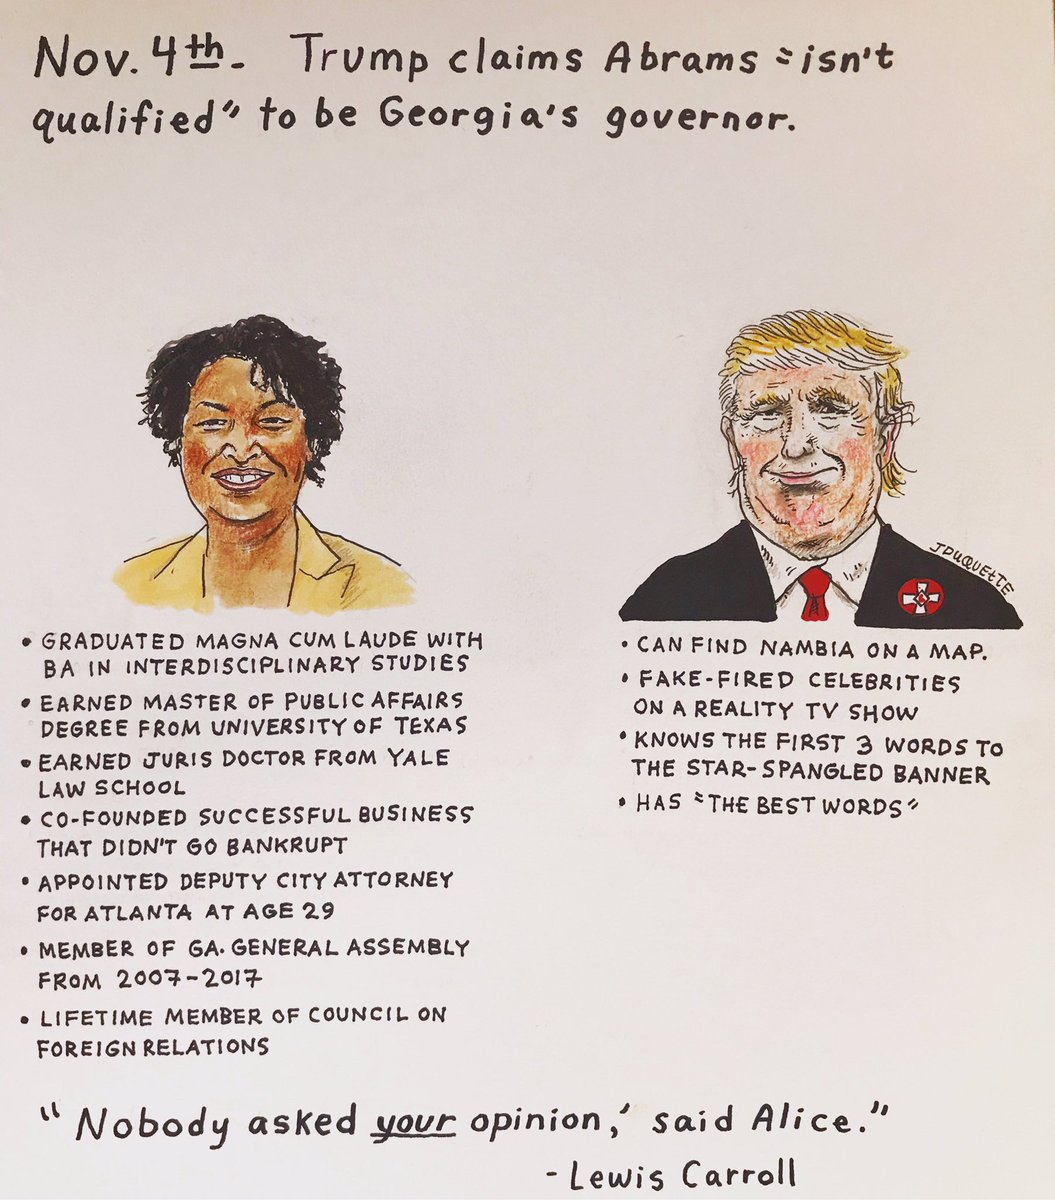 Nov. 4th - Trump claims Abrams "isn't
qualified" to be Georgia's governor.
JDUQUETTE
• GRADUATED MAGNA CUM LAUDE WITH
BA IN INTERDISCIPLINARY STUDIES
• EARNED MASTER OF PUBLIC AFFAIRS
DEGREE FROM UNIVERSITY OF TEXAS
• EARNED JURIS DOCTOR FROM YALE
LAW SCHOOL
• CO-FOUNDED SUCCESSFUL BUSINESS
THAT DIDN'T GO BANKRUPT
• APPOINTED DEPUTY CITY ATTORNEY
FOR ATLANTA AT AGE 29
• MEMBER OF GA. GENERAL ASSEMBLY
FROM 2007-2017
• LIFETIME MEMBER OF COUNCIL ON
FOREIGN RELATIONS
• CAN FIND NAMBIA ON A MAP.
• FAKE-FIRED CELEBRITIES
ON A REALITY TV SHOW
• KNOWS THE FIRST 3 WORDS TO
THE STAR-SPANGLED BANNER
• HAS "THE BEST WORDS"
"Nobody asked your opinion,' said Alice."
- Lewis Carroll